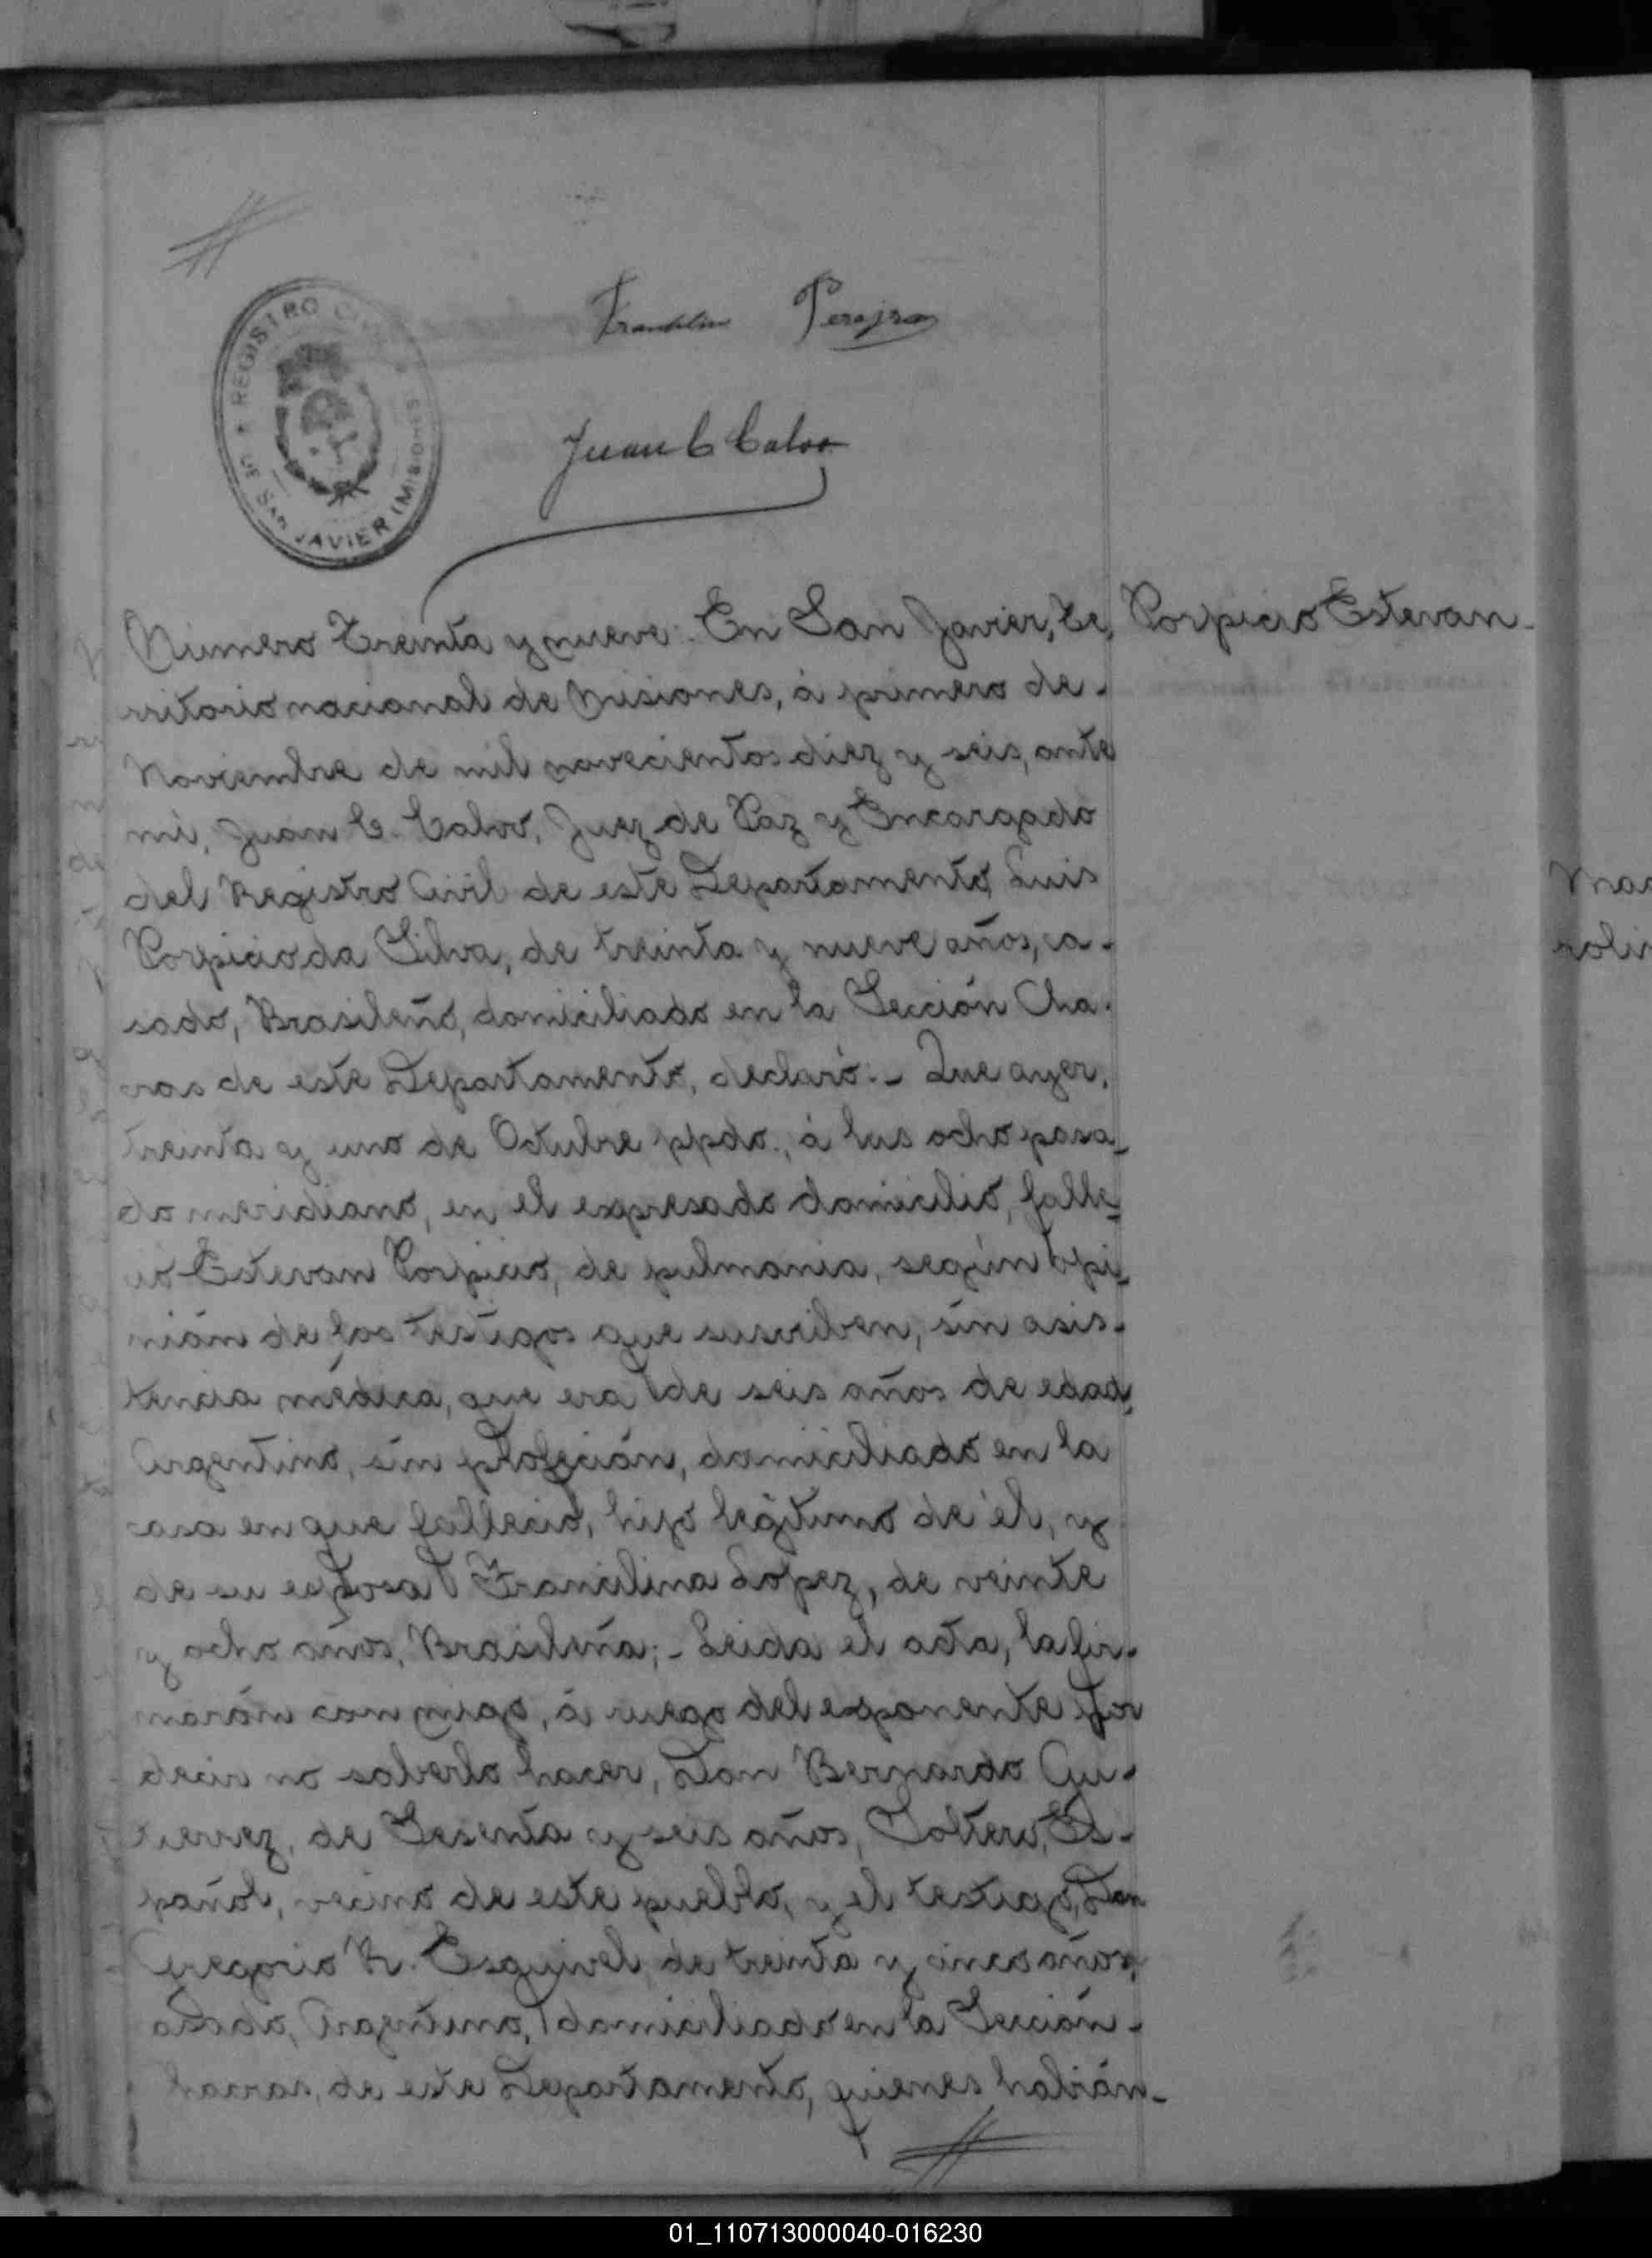 REGISTRO CIVIL
DE SAN JAVIER (MISIONES)
Franklin
Juan C Calvo
Número Treinta y nueve.- En San Javier, Te,
Porpicio Estevan-
rritorio nacional de Misiones, á primero de-
Noviembre de mil novecientos diez y seis, ante
mi, Juan C. Calvo, Juez de Paz y Encaragado
del Registro Civil de este Departamento, Luis
Porpicio da Silva, de treinta y nueve años, ca-
sado, Brasileño, domiciliado en la Sección Cha-
cras de este Departamento, declaró:- Que ayer,
treinta y uno de Octubre ppdo., á las ocho pasa-
do meridiano, en el expresado domicilio, falle-
ció Estevan Porpicio, de pulmonia, según opi-
nión de los testigos que suscriben, sin asis-
tencia médica, que era de seis años de edad,
Argentino, sin profesión, domiciliado en la
casa en que falleció, hijo legítimo de él, y
de su esposa Francilina Lopez, de veinte
y ocho años, Brasileña;- Leida el acta, la fir-
marón con migo, á ruego del exponente por
decir no saberlo hacer, Don Bernardo Gu-
tierrez, de Sesenta y seis años, Soltero, Es-
pañol, vecino de este pueblo, y el testigo, Don
Gregorio R. Esquivel, de treinta y cinco años,
casado, Argentino, domiciliado en la Sección-
hacras, de este Departamento, quienes habián-
01_110713000040-016230